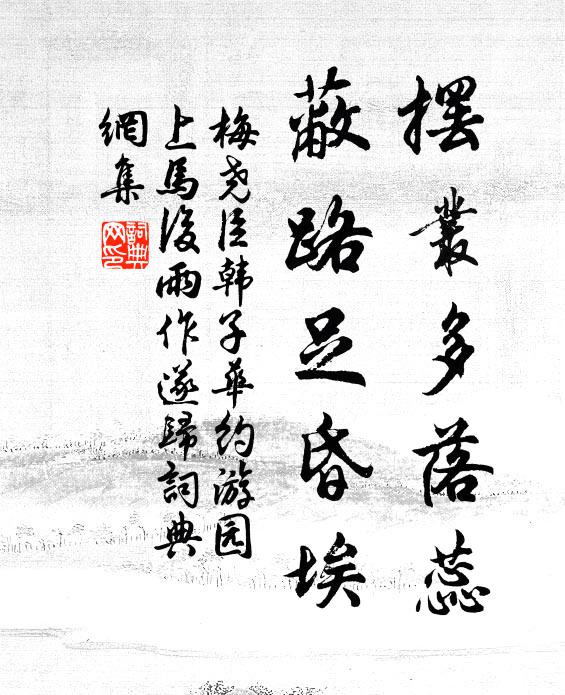 擺叢多落蕊
蔽路足昏埃
梅尧臣韩子華约游园
上馬後雨作遂歸詞典
網集
詞典
网印